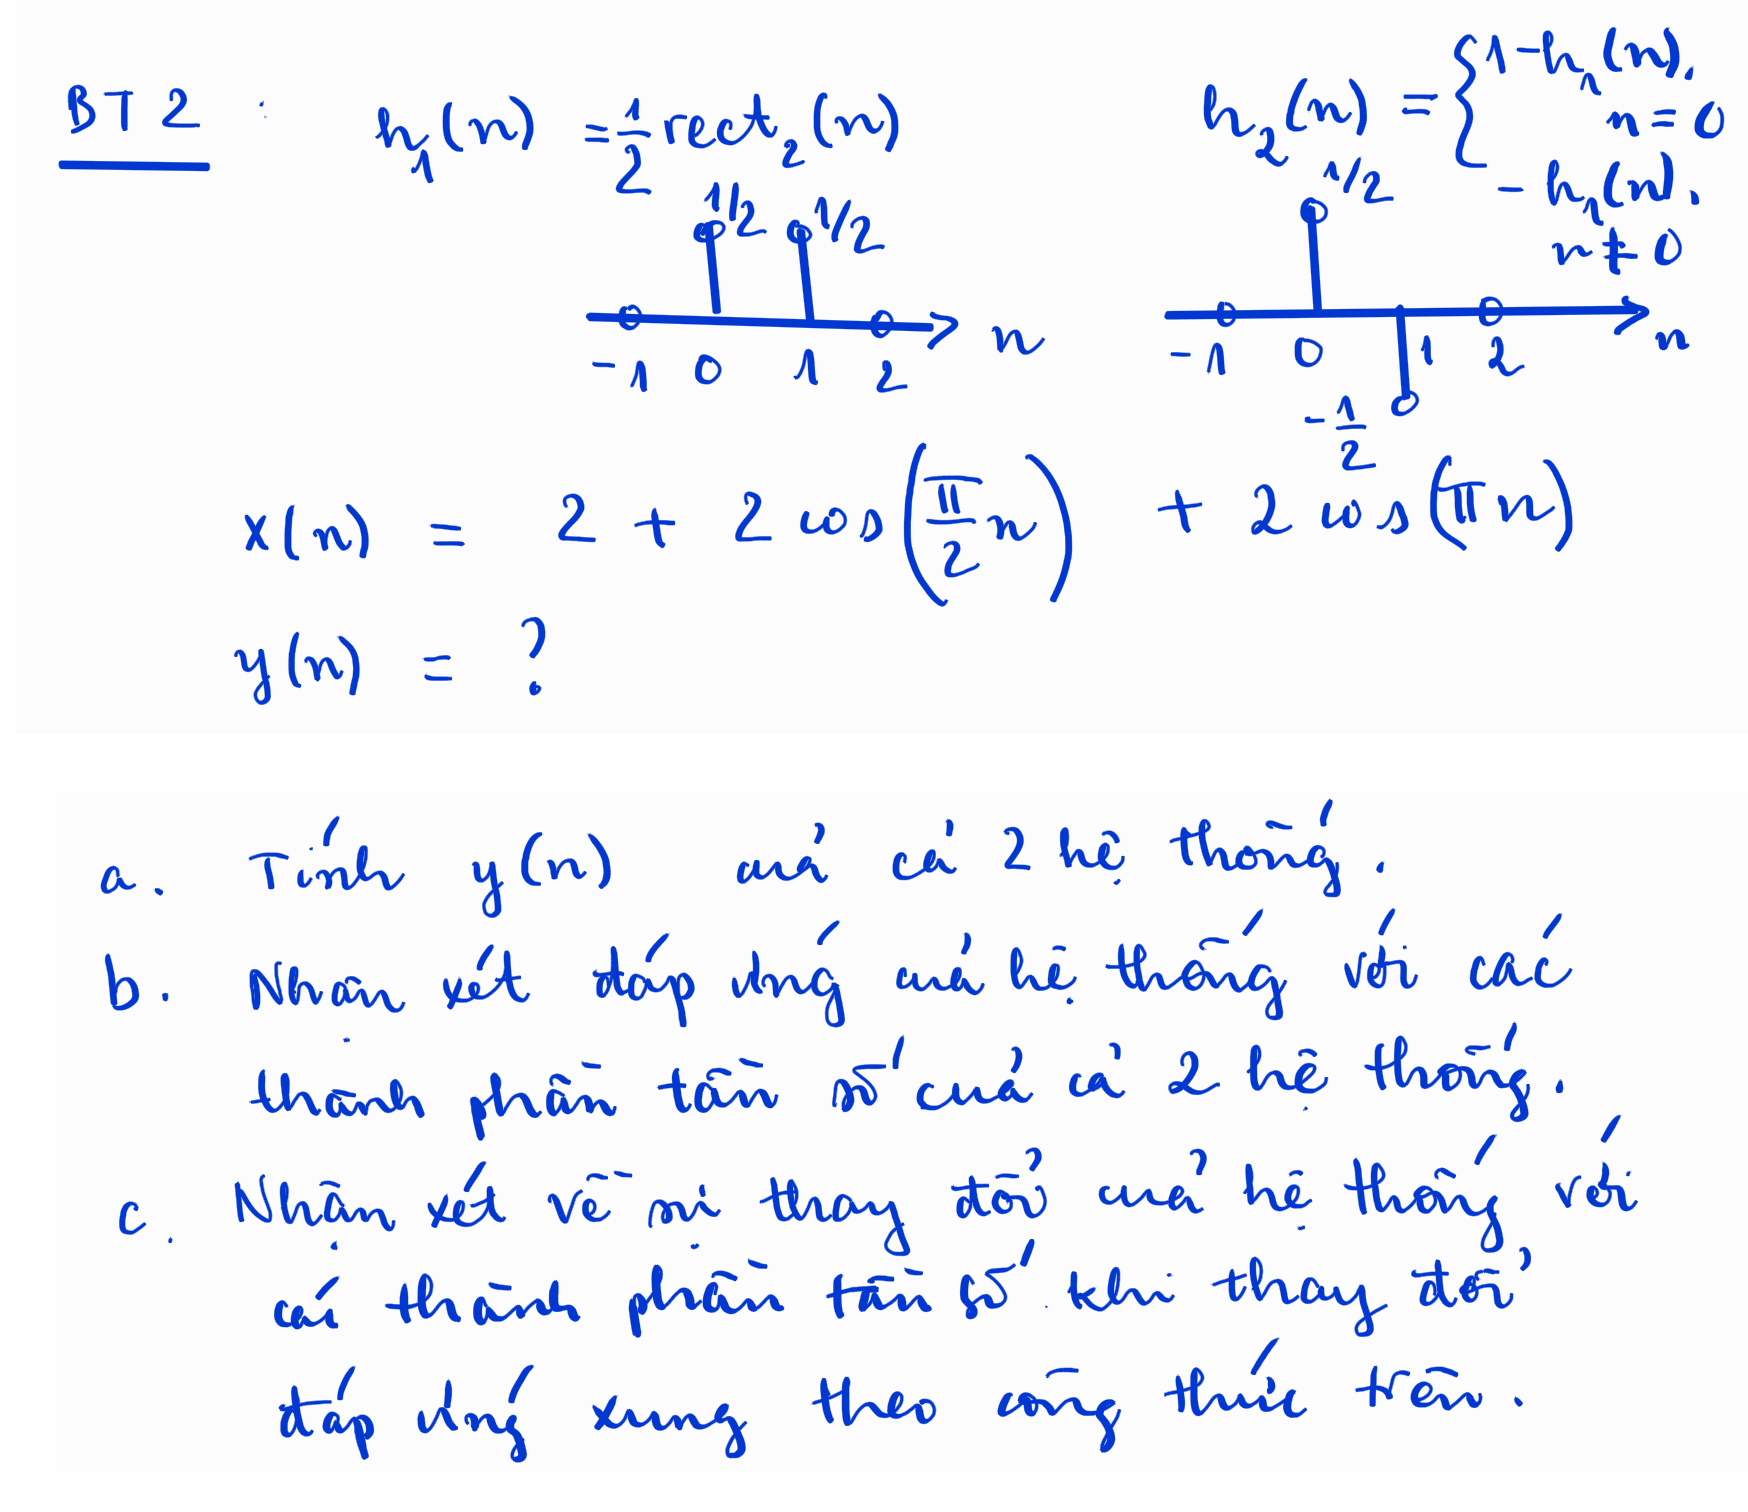 BT 2 : h₁(n) = 1/2 rect₂(n) h₂(n) = { 1 - h₁(n), n = 0
- h₁(n), n ≠ 0
1/2 1/2 1/2
-1 0 1 2 n -1 0 1 2 n
-1/2
x(n) = 2 + 2 cos(π/2 n) + 2 cos(πn)
y(n) = ?
a. Tính y(n) của cả 2 hệ thống.
b. Nhận xét đáp ứng của hệ thống với các
thành phần tần số của cả 2 hệ thống.
c. Nhận xét về sự thay đổi của hệ thống với
các thành phần tần số khi thay đổi
đáp ứng xung theo công thức trên.